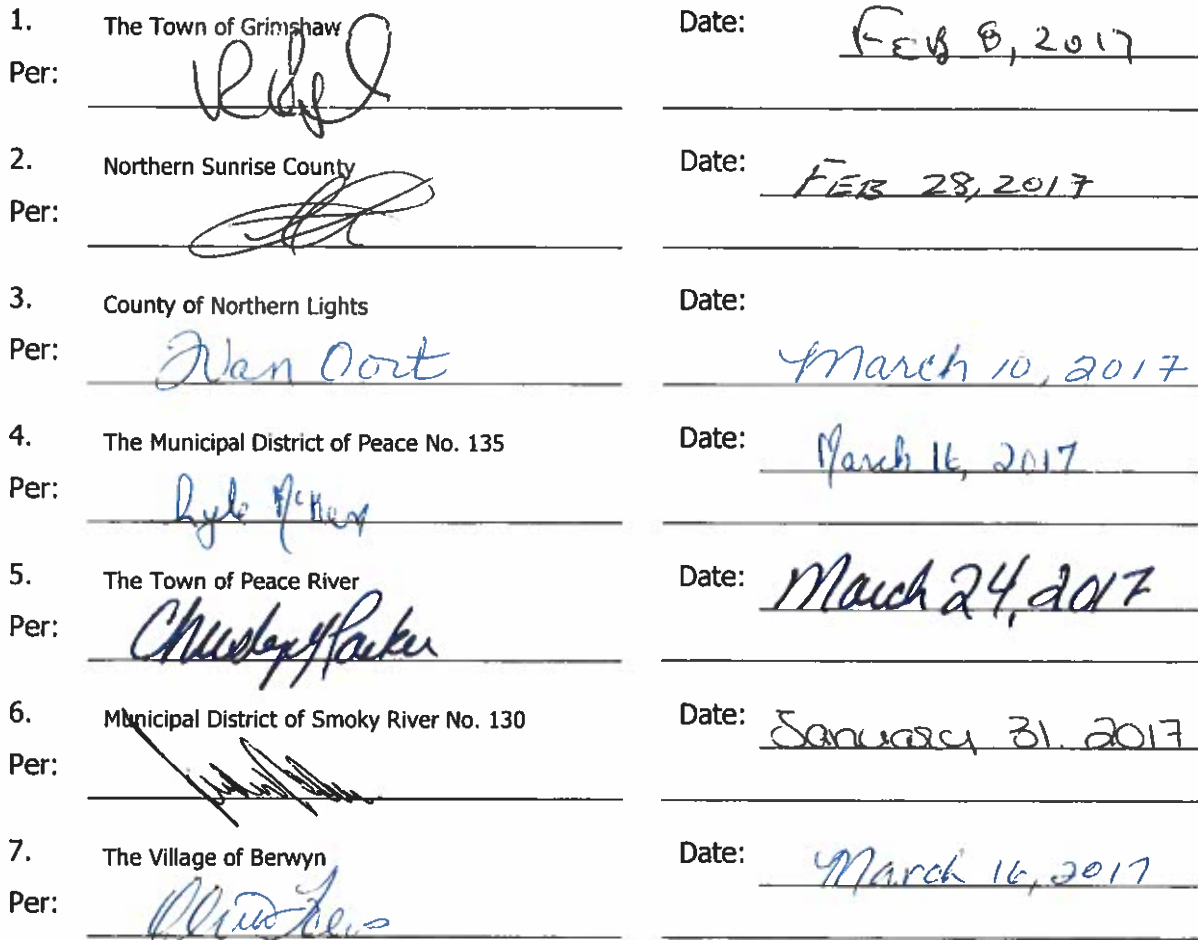 1. The Town of Grimshaw Date: FEB 8, 2017
Per:
2. Northern Sunrise County Date: FEB 28, 2017
Per:
3. County of Northern Lights Date:
Per: Van Oort March 10, 2017
4. The Municipal District of Peace No. 135 Date: March 16, 2017
Per: Lyle McKen
5. The Town of Peace River Date: March 24, 2017
Per: Parker
6. Municipal District of Smoky River No. 130 Date: January 31. 2017
Per:
7. The Village of Berwyn Date: March 16, 2017
Per: